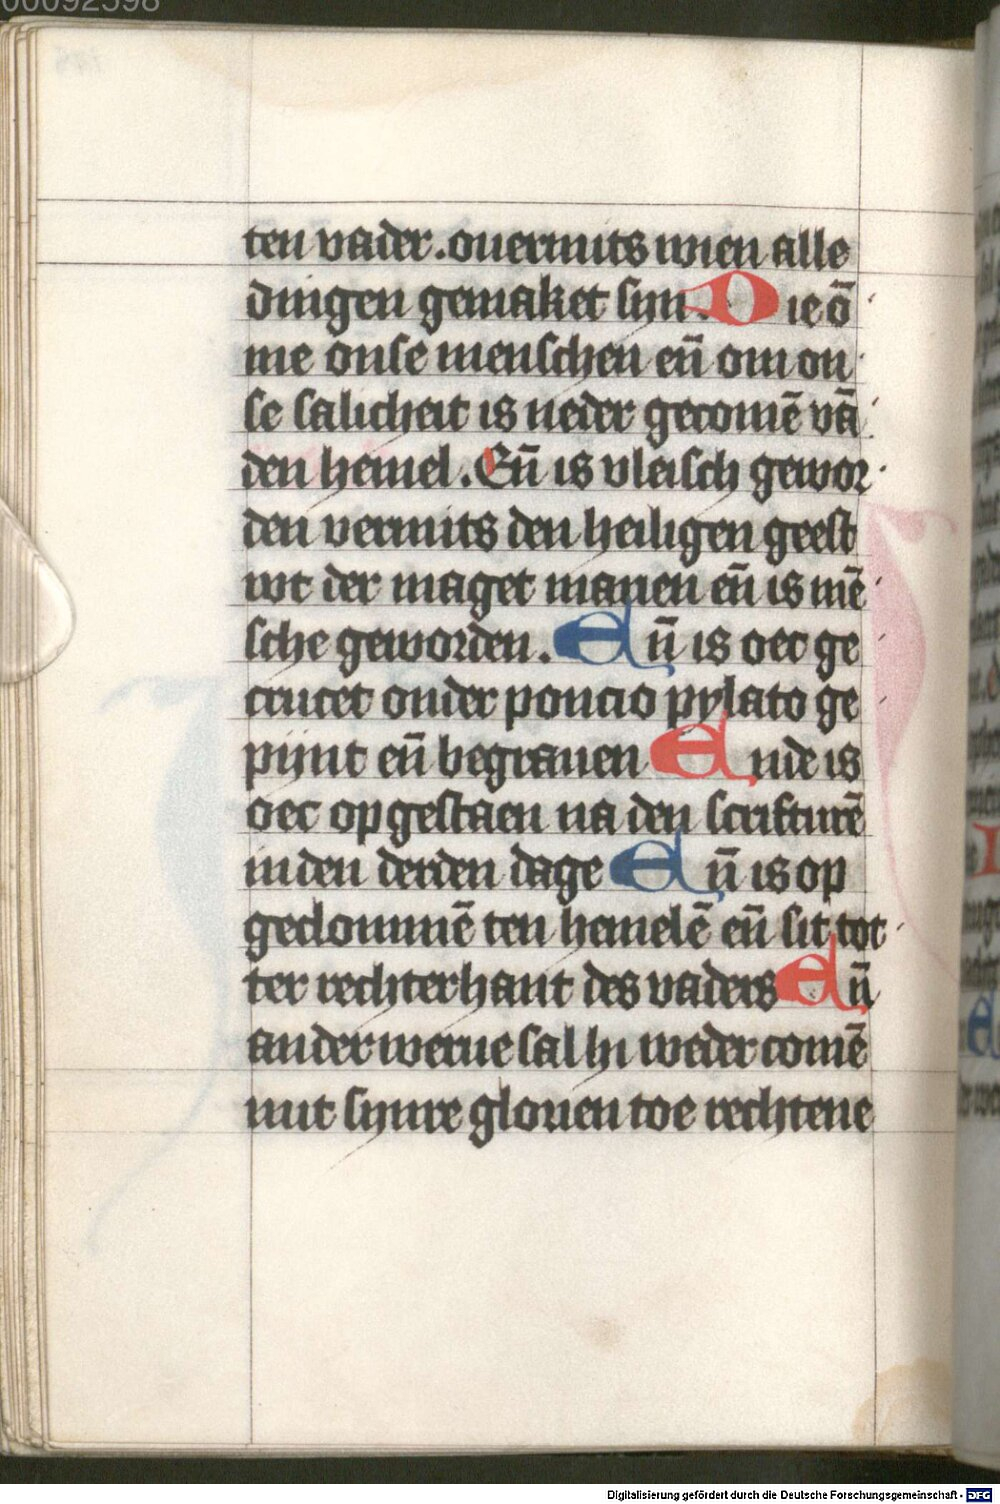 00092598
ten vader. ouermits wien alle
dingen gemaket syn. Die õ
me onse menschen en̄ om on
se salicheit is neder gecomē vā
den hemel. En̄ is vleisch gewor
den vermits den heiligen geest
wt der maget marien en̄ is mē
sche geworden. En̄ is oec ge
crucet onder poncio pylato ge
pijnt en̄ begrauen Ende is
oec op gestaen na den scrifturē
in den derden dage En̄ is op
geclommē ten hemelē en̄ sit tot
ter rechterhant des vaders En̄
anderwerue sal hi weder comē
mit synre glorien toe rechtene
Digitalisierung gefördert durch die Deutsche Forschungsgemeinschaft - DFG